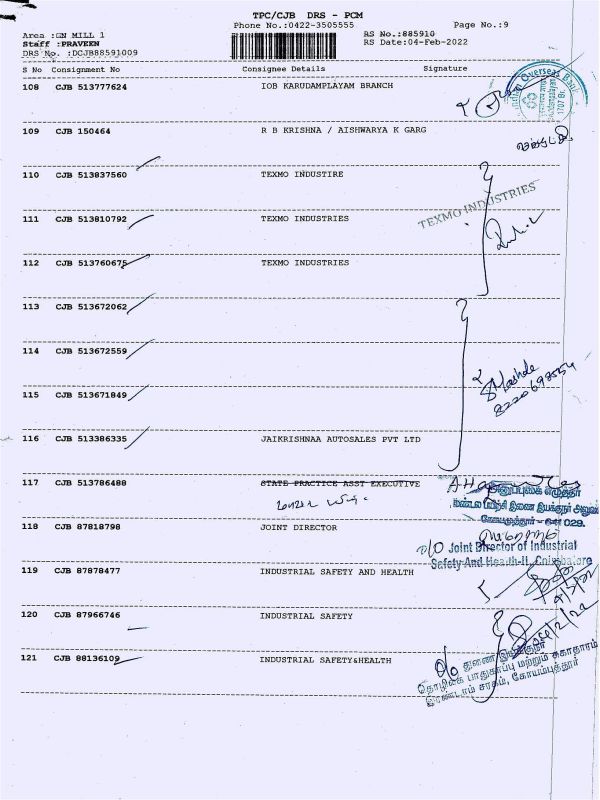 TPC/CJB DRS - PCM
Phone No.:0422-3505555 Page No.:9
Area :GN MILL 1 RS No.:885910
Staff :PRAVEEN RS Date:04-Feb-2022
DRS No. :DCJB88591009
S No Consignment No Consignee Details Signature
108 CJB 513777624 IOB KARUDAMPLAYAM BRANCH
Indian Overseas Bank
109 CJB 150464 R B KRISHNA / AISHWARYA K GARG
110 CJB 513837560 TEXMO INDUSTIRE
TEXMO INDUSTRIES
111 CJB 513810792 TEXMO INDUSTRIES
112 CJB 513760675 TEXMO INDUSTRIES
113 CJB 513672062
114 CJB 513672559
115 CJB 513671849
116 CJB 513386335 JAIKRISHNAA AUTOSALES PVT LTD
117 CJB 513786488 STATE PRACTICE ASST EXECUTIVE
118 CJB 87818798 JOINT DIRECTOR
கோயமுத்தூர் - 029.
Joint Director of Industrial
Safety And Health-II, Coimbatore
119 CJB 87878477 INDUSTRIAL SAFETY AND HEALTH
120 CJB 87966746 INDUSTRIAL SAFETY
121 CJB 88136109 INDUSTRIAL SAFETY&HEALTH
துணை இயக்குநர்
தொழிலக பாதுகாப்பு மற்றும் சுகாதாரம்
இரண்டாம் சரகம், கோயம்புத்தூர்